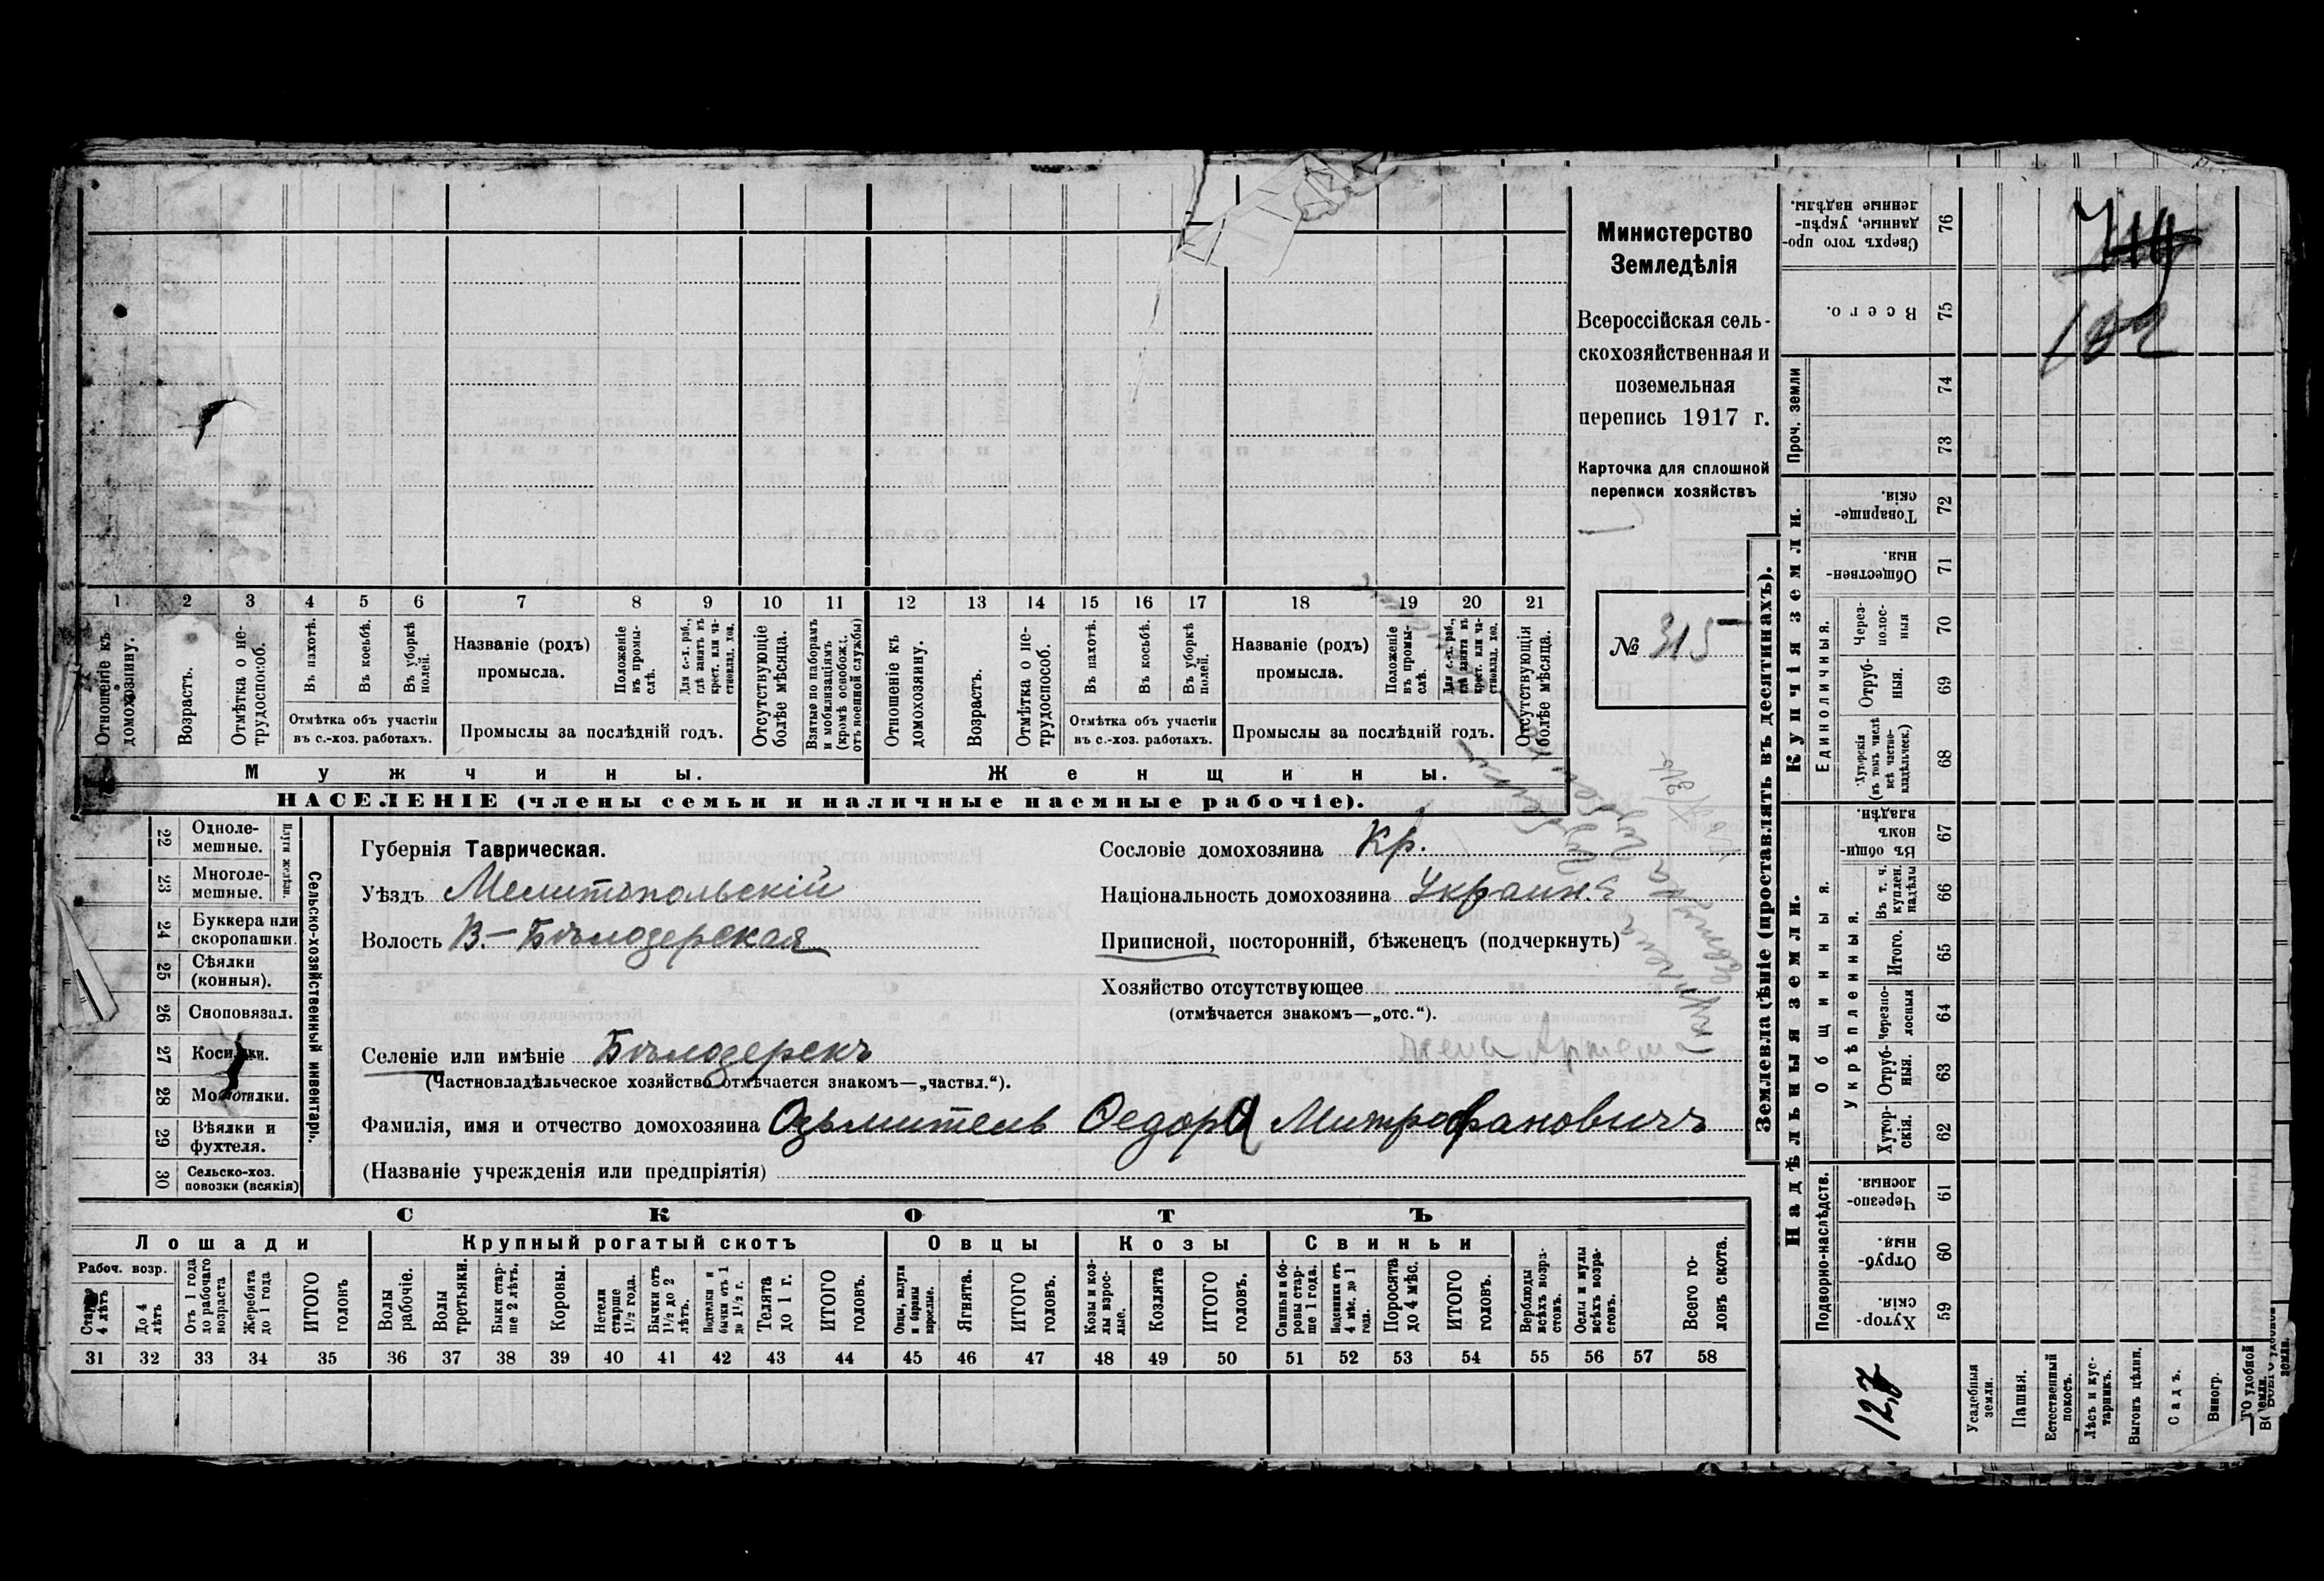 Министерство
Земледѣлія
Всероссійская сель-
скохозяйственная и
поземельная
перепись 1917 г.
Карточка для сплошной
переписи хозяйствъ
№ 315
1 2 3 4 5 6 7 8 9 10 11 12 13 14 15 16 17 18 19 20 21
Отношеніе къ домохозяину.
Возрастъ.
Отмѣтка о не-трудоспособ.
Въ пахотѣ.
Въ косьбѣ.
Въ уборкѣ полей.
Отмѣтка объ участіи
въ с.-хоз. работахъ.
Названіе (родъ)
промысла.
Положеніе въ промы-слѣ.
Для с.-х. раб., гдѣ занятъ въ крест. или ча-стновлад. хоз.
Промыслы за послѣдній годъ.
Отсутствующіе болѣе мѣсяца.
Взятые по наборамъ и мобилизаціямъ (кромѣ освобожд. отъ военной службы)
Отношеніе къ домохозяину.
Возрастъ.
Отмѣтка о не-трудоспособ.
Въ пахотѣ.
Въ косьбѣ.
Въ уборкѣ полей.
Отмѣтка объ участіи
въ с.-хоз. работахъ.
Названіе (родъ)
промысла.
Положеніе въ промы-слѣ.
Для с.-х. раб., гдѣ занята въ крест. или ча-стновлад. хоз.
Промыслы за послѣдній годъ.
Отсутствующія болѣе мѣсяца.
Мужчины.
Женщины.
НАСЕЛЕНІЕ (члены семьи и наличные наемные рабочіе).
Сельско-хозяйственный инвентарь.
Плуги желѣзн.
22 Одноле-мешные.
23 Многоле-мешные.
24 Буккера или скоропашки.
25 Сѣялки (конныя).
26 Сноповязал.
27 Косилки.
28 Молотилки.
29 Вѣялки и фухтеля.
30 Сельско-хоз. повозки (всякія)
Губернія Таврическая.
Уѣздъ Мелитопольскій
Волость В.-Бѣлозерская
Селеніе или имѣніе Бѣлозерскъ
(Частновладѣльческое хозяйство отмѣчается знакомъ—„частвл.“).
Фамилія, имя и отчество домохозяина Озьмитель Федоръ Митрофановичъ
(Названіе учрежденія или предпріятія)
Сословіе домохозяина Кр.
Національность домохозяина Украин.
Приписной, посторонній, бѣженецъ (подчеркнуть)
Хозяйство отсутствующее
(отмѣчается знакомъ—„отс.“).
жена Артема
СКОТЪ
Лошади
Крупный рогатый скотъ
Овцы
Козы
Свиньи
Рабоч. возр.
Старше 4 лѣтъ
До 4 лѣтъ
Отъ 1 года до рабочаго возраста
Жеребята до 1 года
ИТОГО головъ
Волы рабочіе.
Волы третьяки.
Быки стар-ше 2 лѣтъ.
Коровы.
Нетели старше 1½ года.
Бычки отъ 1½ до 2 лѣтъ.
Подтелки и бычки отъ 1 до 1½ г.
Телята до 1 г.
ИТОГО головъ.
Овцы, валухи и бараны взрослые.
Ягнята.
ИТОГО головъ.
Козы и коз-лы взрос-лые.
Козлята
ИТОГО головъ.
Свиньи и бо-ровы стар-ше 1 года.
Подсвинки отъ 4 мѣс. до 1 года.
Поросята до 4 мѣс.
ИТОГО головъ.
Верблюды всѣхъ возра-стовъ.
Ослы и мулы всѣхъ возра-стовъ.
Всего го-ловъ скота.
31 32 33 34 35 36 37 38 39 40 41 42 43 44 45 46 47 48 49 50 51 52 53 54 55 56 57 58
Землевладѣніе (проставлять въ десятинахъ).
Надѣльныя земли.
Купчія земли.
Проч. земли
Подворно-наслѣдств.
Общинныя.
Укрѣпленныя.
Единоличныя.
Сверхъ того про-данные, укрѣп-ленные надѣлы. 76
Всего. 75
74
73
Товарище-скія. 72
Обществен-ныя. 71
Через-полос-ныя 70
Отруб-ныя. 69
Хуторскія (въ томъ числѣ всѣ частно-владѣльческ.) 68
Въ общи-номъ владѣн. 67
Въ т. ч. куплен. надѣлы 66
Итого. 65
Черезпо-лосныя 64
Отруб-ныя. 63
Хутор-скія. 62
Черезпо-лосныя 61
Отруб-ныя. 60
Хутор-скія. 59
Усадебныя земли.
Пашня.
Естественный покосъ.
Лѣсъ и кус-тарникъ.
Выгонъ цѣлин.
Садъ.
Виногр.
127
132